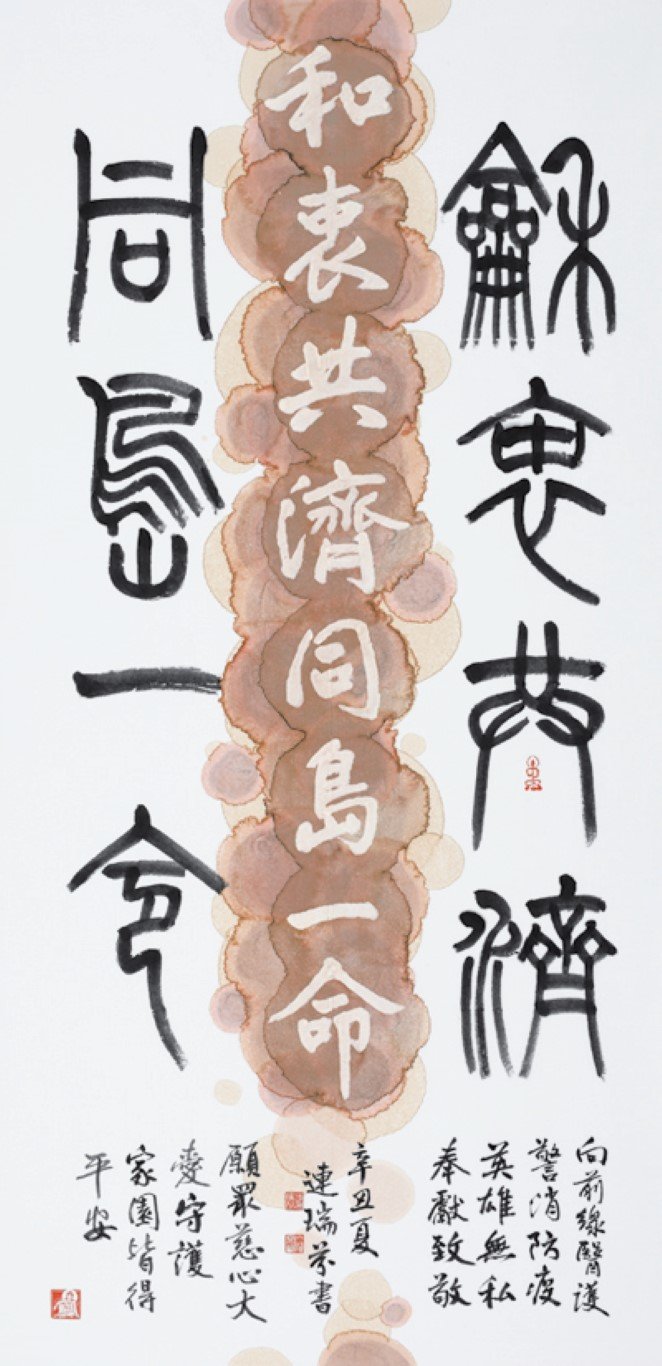 龢衷共濟
和衷共濟同島一命
同島一令
向前線醫護
警消防疫
英雄無私
奉獻致敬
辛丑夏
連瑞芬書
願眾慈心大
愛守護
家園皆得
平安